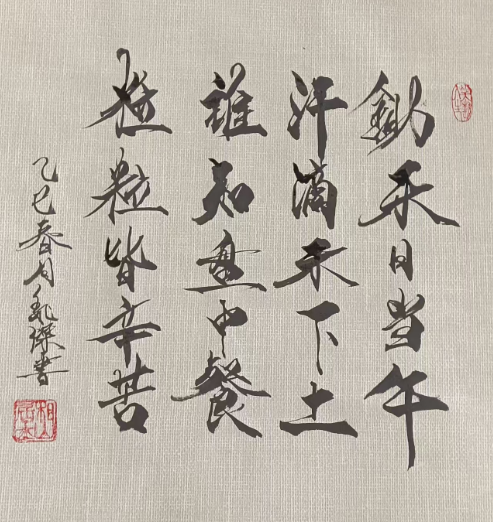 鋤禾日当午
汗滴禾下土
誰知盘中餐
粒粒皆辛苦
乙巳春月
书